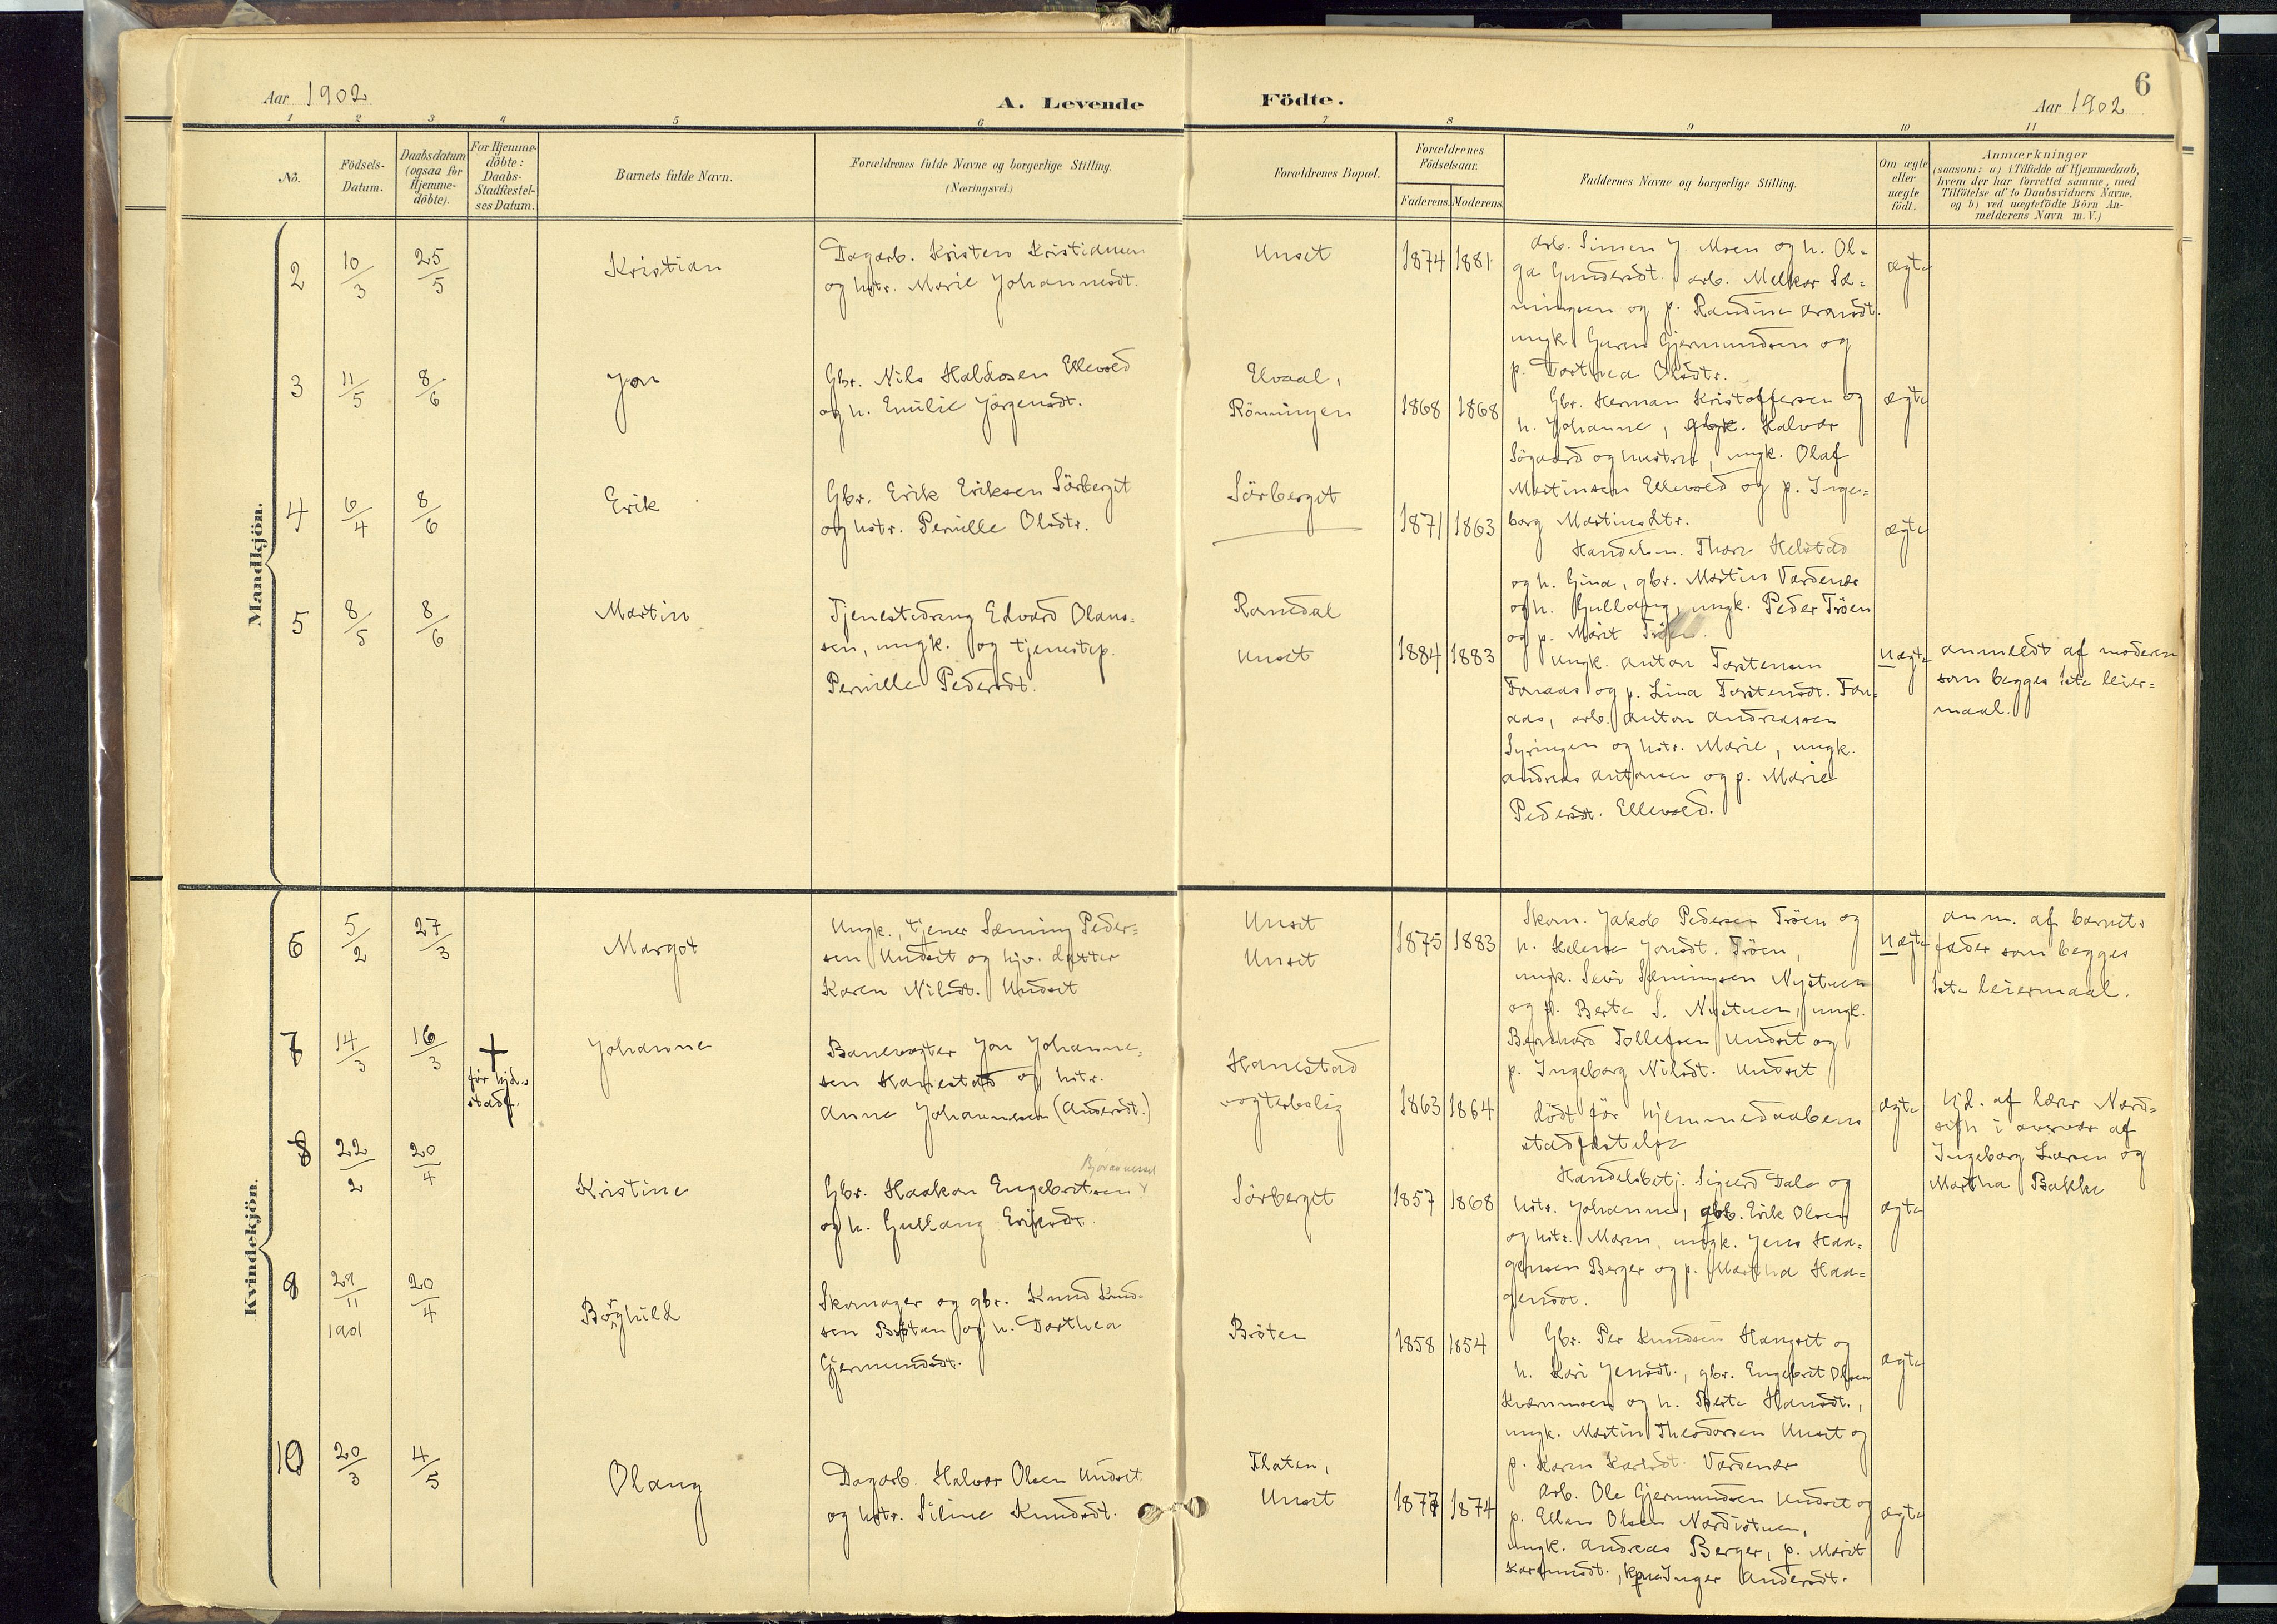 Aar 1902
A. Levende
Födte.
6
Aar 1902
1 2 3 4 5 6 7 8 9 10 11
Nô.
Födsels-Datum.
Daabsdatum (ogsaa for Hjemme-döbte).
For Hjemme-döbte: Daabs-Stadfæstel-ses Datum.
Barnets fulde Navn.
Forældrenes fulde Navne og borgerlige Stilling.
(Næringsvei.)
Forældrenes Bopæl.
Forældrenes Födselsaar.
Faderens.
Moderens.
Faddernes Navne og borgerlige Stilling.
Om ægte eller uægte födt.
Anmærkninger
(saasom: a) i Tilfælde af Hjemmedaab,
hvem der har forrettet samme, med
Tilföielse af to Daabsvidners Navne,
og b) ved uægtefödte Börn An-
melderens Navn m. V.)
Mandkjön.
2
10/3
25/5
Kristian
Dagarb. Kristen Kristiansen
og hstr. Marie Johannesdt.
Unset
1874
1881
arb. Simen J. Moen og h. Ol-
ga Gundersdt. arb. Melkor Sæ-
mingsen og p. Randine
ungk. Gjermundsen og
p. Dorthea Olsdtr.
ægte
3
11/5
8/6
Jon
Gbr. Nils Haldosen Ellevold
og h. Emilie Jörgensdt.
Elvaal,
Rönningen
1868
1868
Gbr. Herman Kristoffersen og
h. Johanne, Halvor
Sögaard og hustru, ungk. Olaf
Martinsen Ellevold og p. Inge-
borg Martinsdtr.
ægte
4
6/4
8/6
Erik
Gbr. Erik Eriksen Sörberget
og hstr. Pernille Olsdtr.
Sörberget
1871
1863
Handelsm. Thore Helstad
og h. Gina, gbr. Martin Vardenær
og h. Gullaug, ungk. Peder Tröen
og p. Marit Tröen.
ægte
5
8/5
8/6
Martin
Tjenestedreng Edvard Olaus-
sen, ungk. og tjenestep.
Pernille Pedersdt.
Ramdal
Unset
1884
1883
Ungk. Anton Torstensen
Fonaas og p. Lina Torstensdt. Fon-
aas, arb. Anton Andreassen
Syringen og hstr. Marie, ungk.
Andreas Antonsen og p. Marie
Pedersdt. Ellevold.
uægte
anmeldt af moderen
som begges 1ste leier-
maal.
Kvindekjön.
6
5/2
27/3
Margot
Ungk., tjener Sæming Peder-
sen Undset og hjv. datter
Karen Nilsdt. Undset
Unset
Unset
1875
1883
Skom. Jakob Pedersen Tröen og
h. Helene Jonsdt. Tröen,
ungk. Sevi Sæmingsen Nystuen
og p. Berte S. Nystuen, ungk.
Bernhard Tollefsen Undset og
p. Ingeborg Nilsdt. Undset
uægte
anm. af barnets
fader som begges
1ste leiermaal.
7
14/3
16/3
+
før hjd.s
stadf.
Johanne
Banevogter Jon Johanne-
sen Hanestad og hstr.
Anne Johannesen (Andersdt.)
Hanestad
vogterbolig
1863
1864
dödt før hjemmedaabens
stadfæstelse
ægte
hjd. af lærer Nord-
seth i overvær af
Ingeborg Larsen og
Martha Bakke
8
22/2
20/4
Kristine
Gbr. Haakon Engebretsen
og h. Gullaug Eriksdt.
Sörberget
1857
1868
Handelsbetj. Sigurd Dale og
hstr. Johanne, gbr. Erik Olsen
og hstr. Maren, ungk. Jens Haa-
gensen Berger og p. Martha Haa-
gensdt.
ægte
9
29/11
1901
20/4
Borghild
Skomager og gbr. Knud Knud-
sen Bröten og h. Dorthea
Gjermundsdt.
Bröten
1858
1854
Gbr. Per Knudsen Hangset og
h. Kari Jensdt., gbr. Engebret Olsen
Kværnmoen og h. Berte Hansdt.,
ungk. Martin Theodorsen Unset og
p. Karen Karlsdt. Vardenær
ægte
10
20/3
4/5
Olaug
Dagarb. Halvor Olsen Undset
og hstr. Siline Knudsdt.
Flaten,
Unset
1877
1874
Arb. Ole Gjermundsen Undset og
p. Ellen Olsen Nordistuen,
ungk. Andreas Berger, p. Marit
Inger Andersdt.
ægte